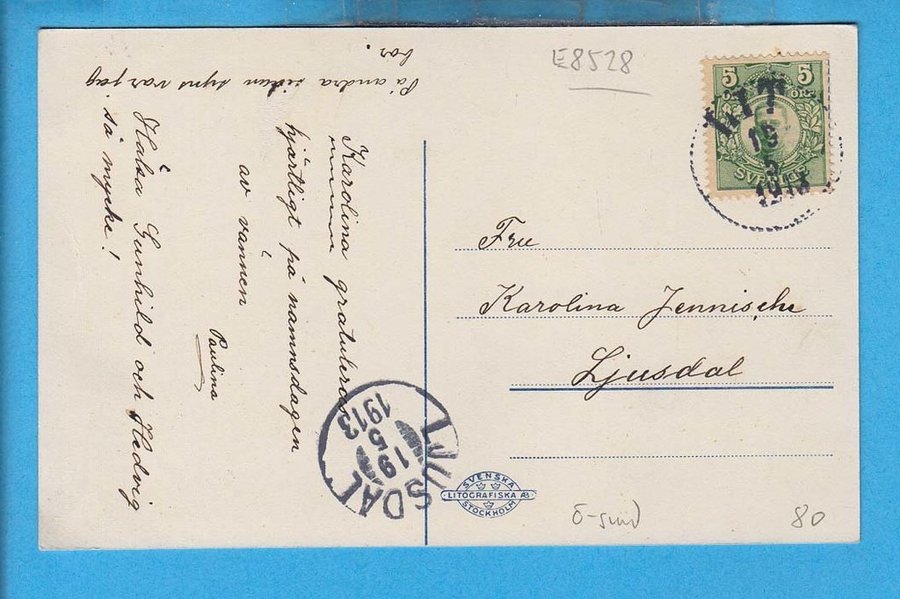 Karolina gratuleras
hjärtligt på namnsdagen
av vännen
Paulina
Hälsa Gunhild och Hedvig
så mycke!
På andra sidan syns var jag
bor.
E8528
5 5
ÖRE
SVERIGE
LIT
5
1913
Fru
Karolina Jennische
Ljusdal
LJUSDAL
19
5
1913
SVENSKA
LITOGRAFISKA AB
STOCKHOLM
Ö-sund
80